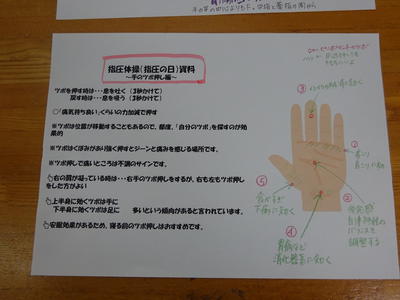 指圧体操(指圧の日)資料
～手のツボ押し編～
ツボを押す時は・・・息を吐く (3秒かけて)
戻す時は・・・息を吸う (3秒かけて)
○「痛気持ち良い」くらいの力加減で押す
※ツボは位置が移動することもあるので、都度、「自分のツボ」を探すのが効果
的
※ツボはくぼみがあり強く押すとジーンと痛みを感じる場所です。
※ツボ押しで痛いところは不調のサインです。
右の肩が凝っている時は・・・右手のツボ押しをするが、右も左もツボ押し
をした方がよい
上半身に効くツボは手に
下半身に効くツボは足に 多いという傾向があると言われています。
※安眠効果があるため、寝る前のツボ押しはおすすめです。
③
①
肩こり
②
疲労感
自律神経の
バランスを
調整する
④
胃病など
消化器系に効く
⑤
下痢に効く